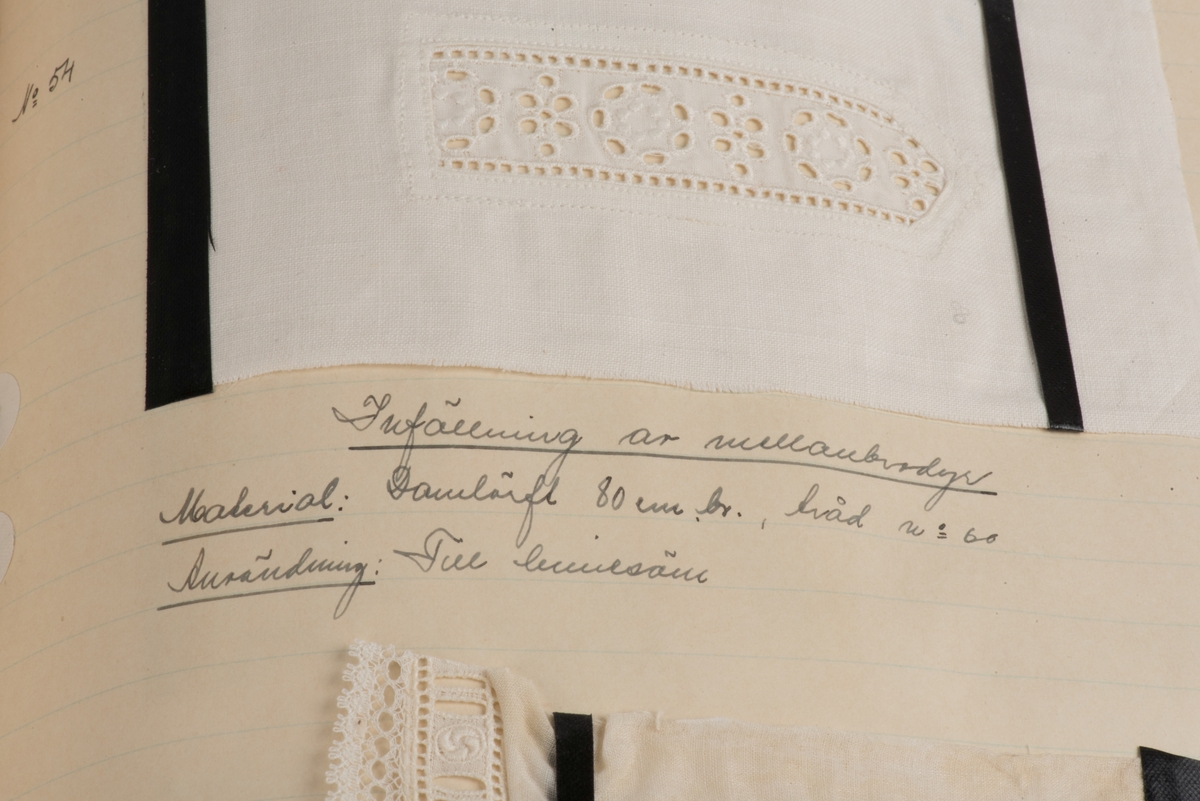 No 54
Infällning av mellanbrodyr
Material: Damlärft 80 cm. br., tråd no 60
Användning: Till linnesöm